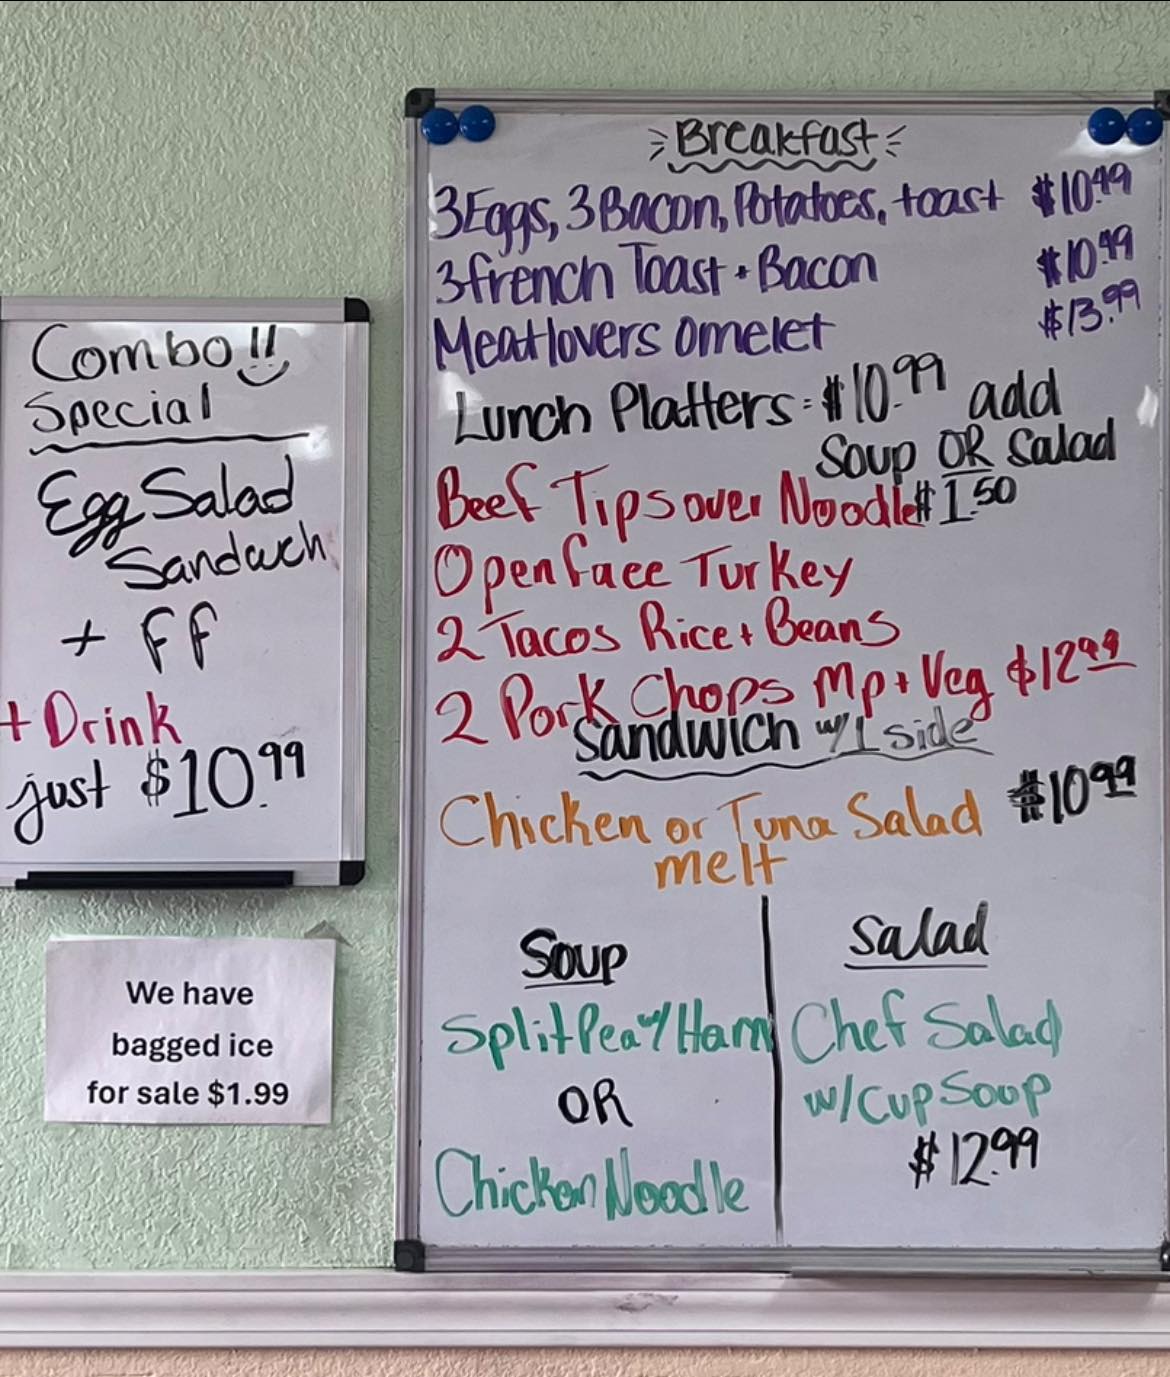 Combo!!
Special
Egg Salad
Sandwch
+ FF
+ Drink
just $10.99
We have
bagged ice
for sale $1.99
Breakfast
3 Eggs, 3 Bacon, Potatoes, toast $10.49
3 french Toast + Bacon $10.49
Meatlovers omelet $13.99
Lunch Platters = $10.99 add
Soup OR Salad
Beef Tips over Noodle $1.50
Open face Turkey
2 Tacos Rice + Beans
2 Pork Chops Mp + Veg $12.99
Sandwich w/1 side
Chicken or Tuna Salad $10.99
melt
Soup
Split Pea w/ Ham
OR
Chicken Noodle
Salad
Chef Salad
w/Cup Soup
$12.99